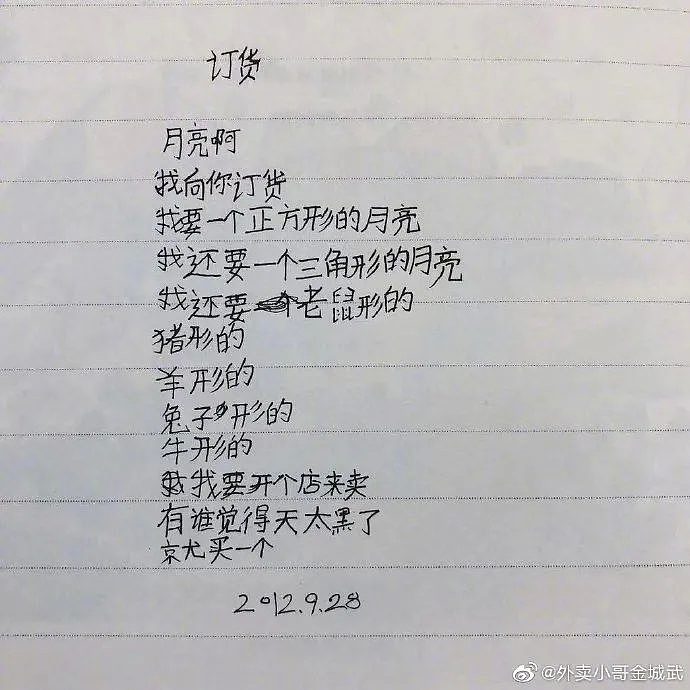 订货
月亮啊
我向你订货
我要一个正方形的月亮
我还要一个三角形的月亮
我还要老鼠形的
猪形的
羊形的
兔子形的
牛形的
我要开个店来卖
有谁觉得天太黑了
京尤买一个
2012.9.28
@外卖小哥金城武